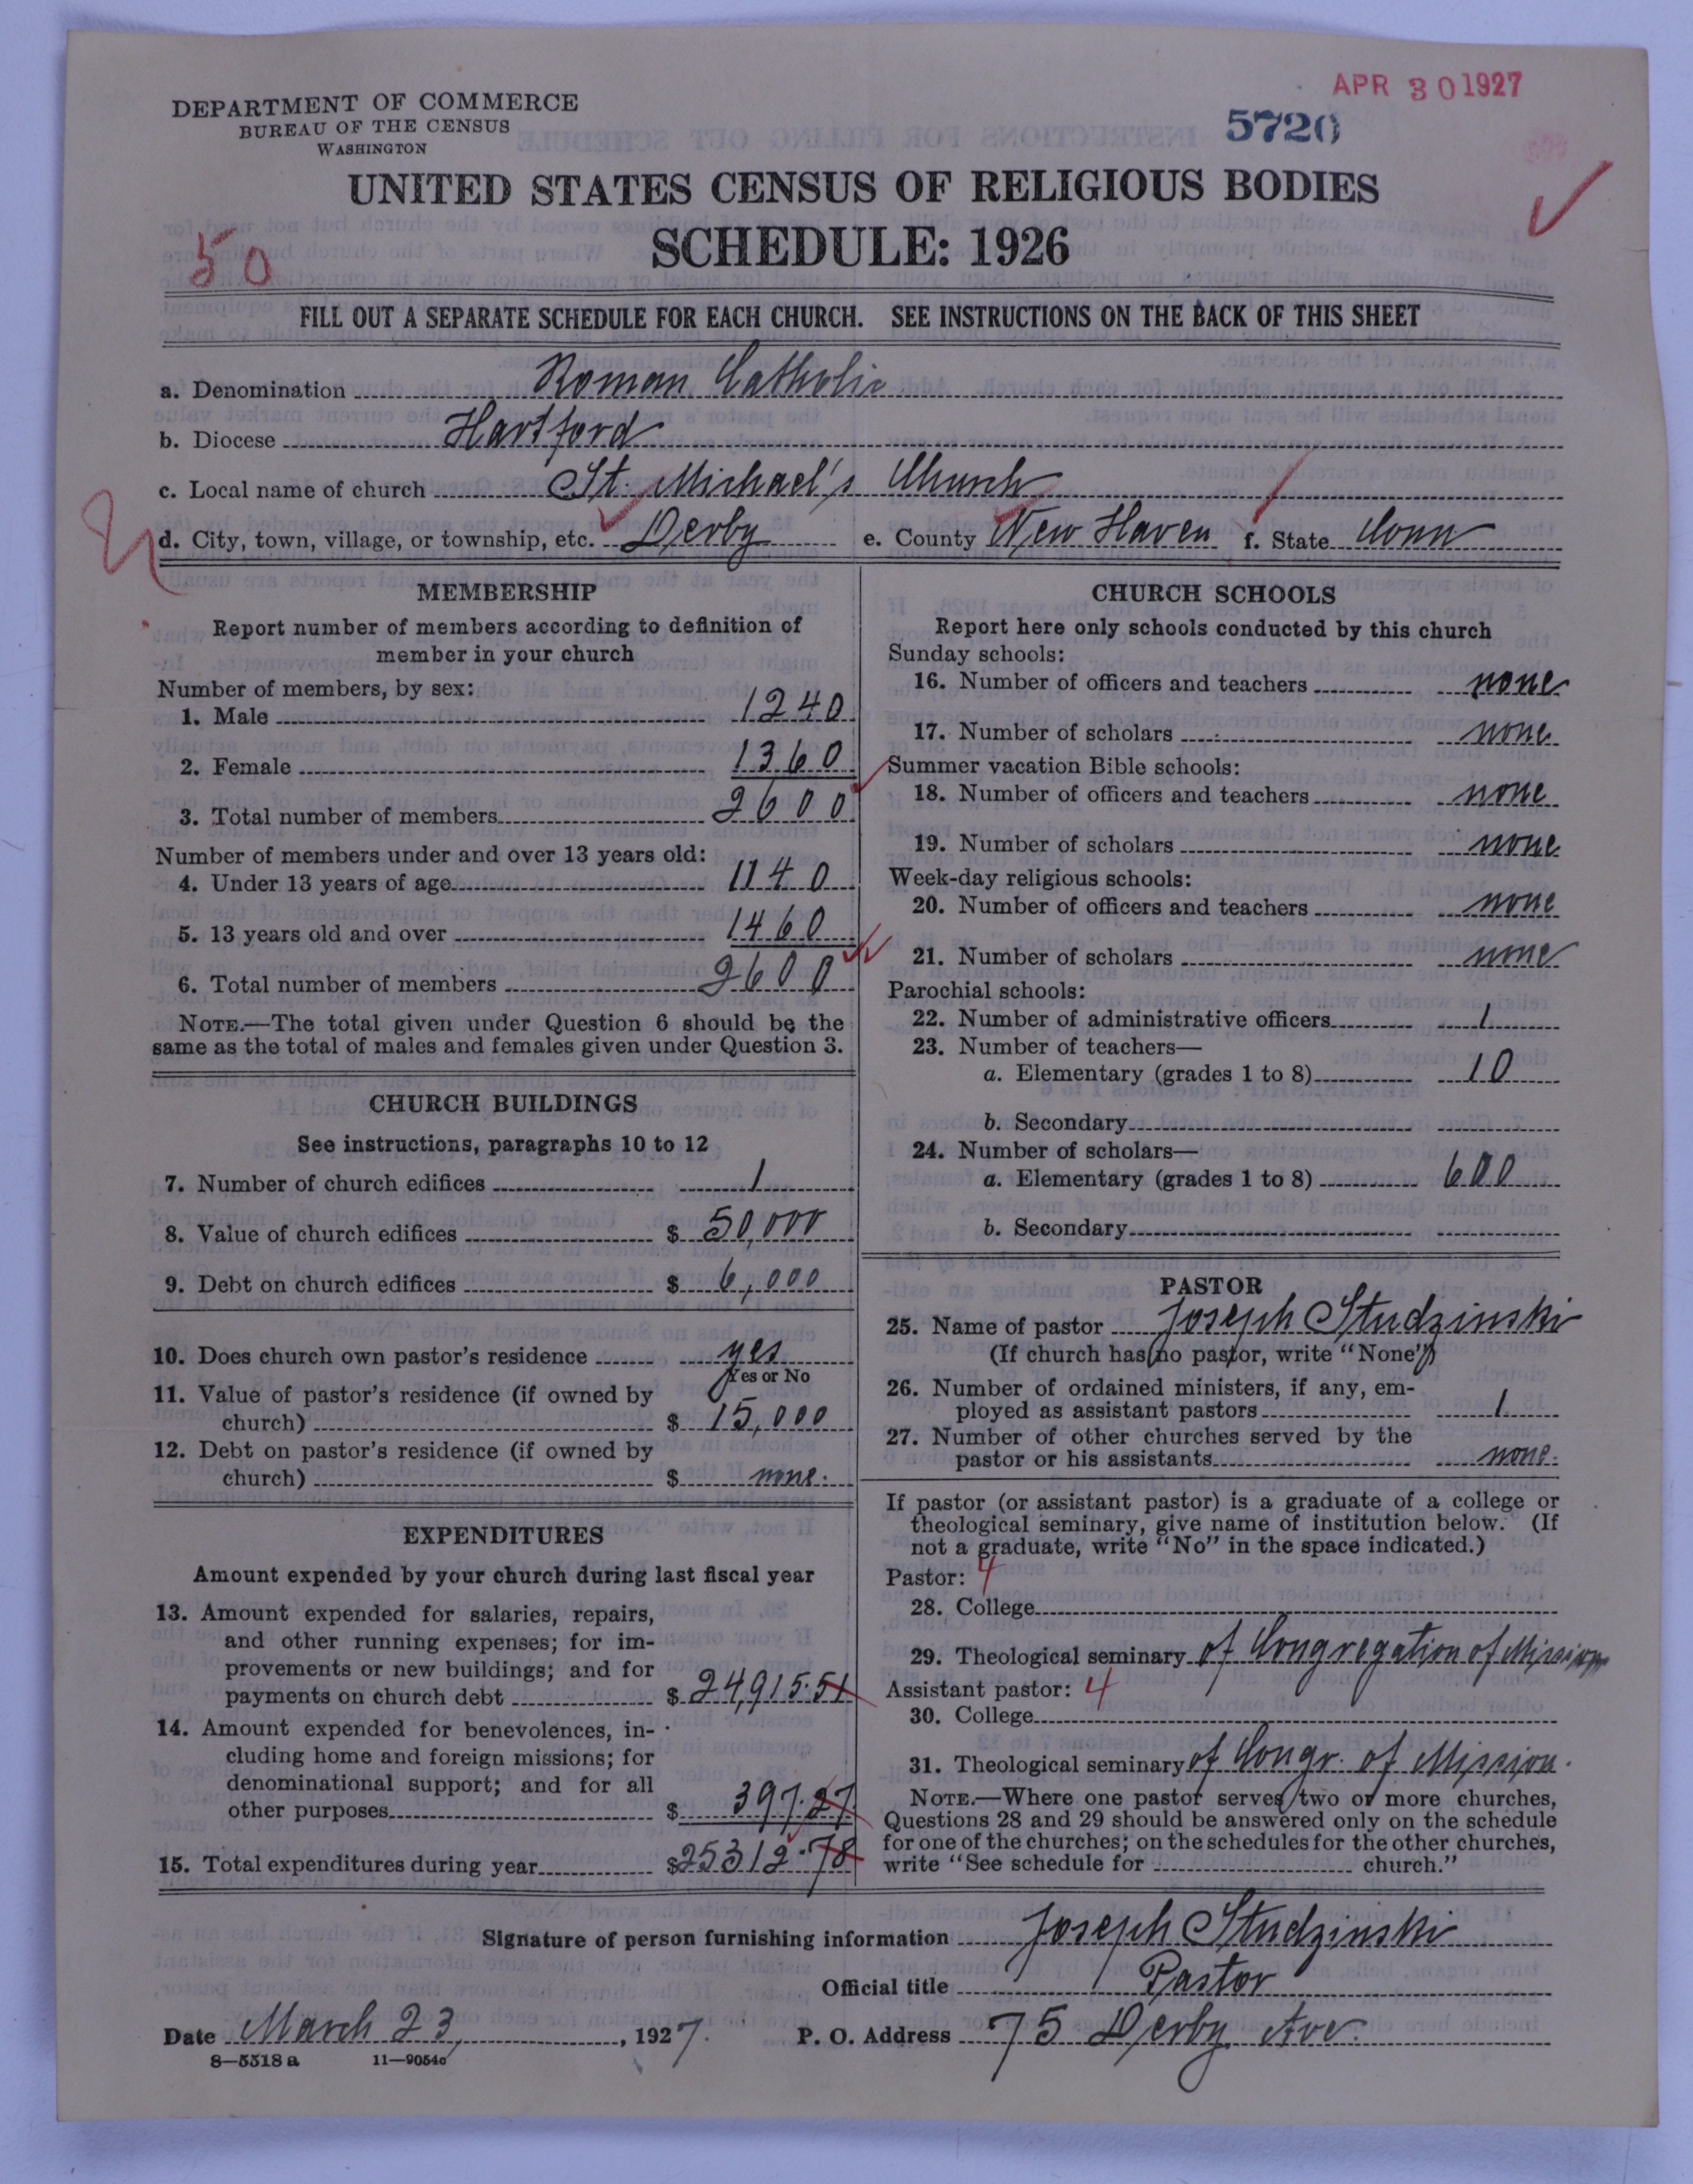 APR 30 1927
DEPARTMENT OF COMMERCE
BUREAU OF THE CENSUS
WASHINGTON
5720
UNITED STATES CENSUS OF RELIGIOUS BODIES
SCHEDULE: 1926
50
FILL OUT A SEPARATE SCHEDULE FOR EACH CHURCH. SEE INSTRUCTIONS ON THE BACK OF THIS SHEET
a. Denomination Roman Catholic
b. Diocese Hartford
c. Local name of church St. Michael's Church
d. City, town, village, or township, etc. Derby e. County New Haven f. State Conn
MEMBERSHIP
Report number of members according to definition of
member in your church
Number of members, by sex:
1. Male 1240
2. Female 1360
3. Total number of members 2600
Number of members under and over 13 years old:
4. Under 13 years of age 1140
5. 13 years old and over 1460
6. Total number of members 2600
NOTE.—The total given under Question 6 should be the
same as the total of males and females given under Question 3.
CHURCH BUILDINGS
See instructions, paragraphs 10 to 12
7. Number of church edifices 1
8. Value of church edifices $ 50,000
9. Debt on church edifices $ 6,000
10. Does church own pastor's residence yes
Yes or No
11. Value of pastor's residence (if owned by
church) $ 15,000
12. Debt on pastor's residence (if owned by
church) $ none.
EXPENDITURES
Amount expended by your church during last fiscal year
13. Amount expended for salaries, repairs,
and other running expenses; for im-
provements or new buildings; and for
payments on church debt $ 24,915.51
14. Amount expended for benevolences, in-
cluding home and foreign missions; for
denominational support; and for all
other purposes $ 397.27
15. Total expenditures during year $25312.78
CHURCH SCHOOLS
Report here only schools conducted by this church
Sunday schools:
16. Number of officers and teachers none
17. Number of scholars none
Summer vacation Bible schools:
18. Number of officers and teachers none
19. Number of scholars none
Week-day religious schools:
20. Number of officers and teachers none
21. Number of scholars none
Parochial schools:
22. Number of administrative officers 1
23. Number of teachers—
a. Elementary (grades 1 to 8) 10
b. Secondary
24. Number of scholars—
a. Elementary (grades 1 to 8) 600
b. Secondary
PASTOR
25. Name of pastor Joseph Studzinski
(If church has no pastor, write "None")
26. Number of ordained ministers, if any, em-
ployed as assistant pastors 1
27. Number of other churches served by the
pastor or his assistants none.
If pastor (or assistant pastor) is a graduate of a college or
theological seminary, give name of institution below. (If
not a graduate, write "No" in the space indicated.)
Pastor: 4
28. College
29. Theological seminary of Congregation of Mission
Assistant pastor: 4
30. College
31. Theological seminary of Congr. of Mission.
NOTE.—Where one pastor serves two or more churches,
Questions 28 and 29 should be answered only on the schedule
for one of the churches; on the schedules for the other churches,
write "See schedule for church."
Signature of person furnishing information Joseph Studzinski
Official title Pastor
Date March 23, 1927. P. O. Address 75 Derby Ave.
8—5518 a 11—9054c